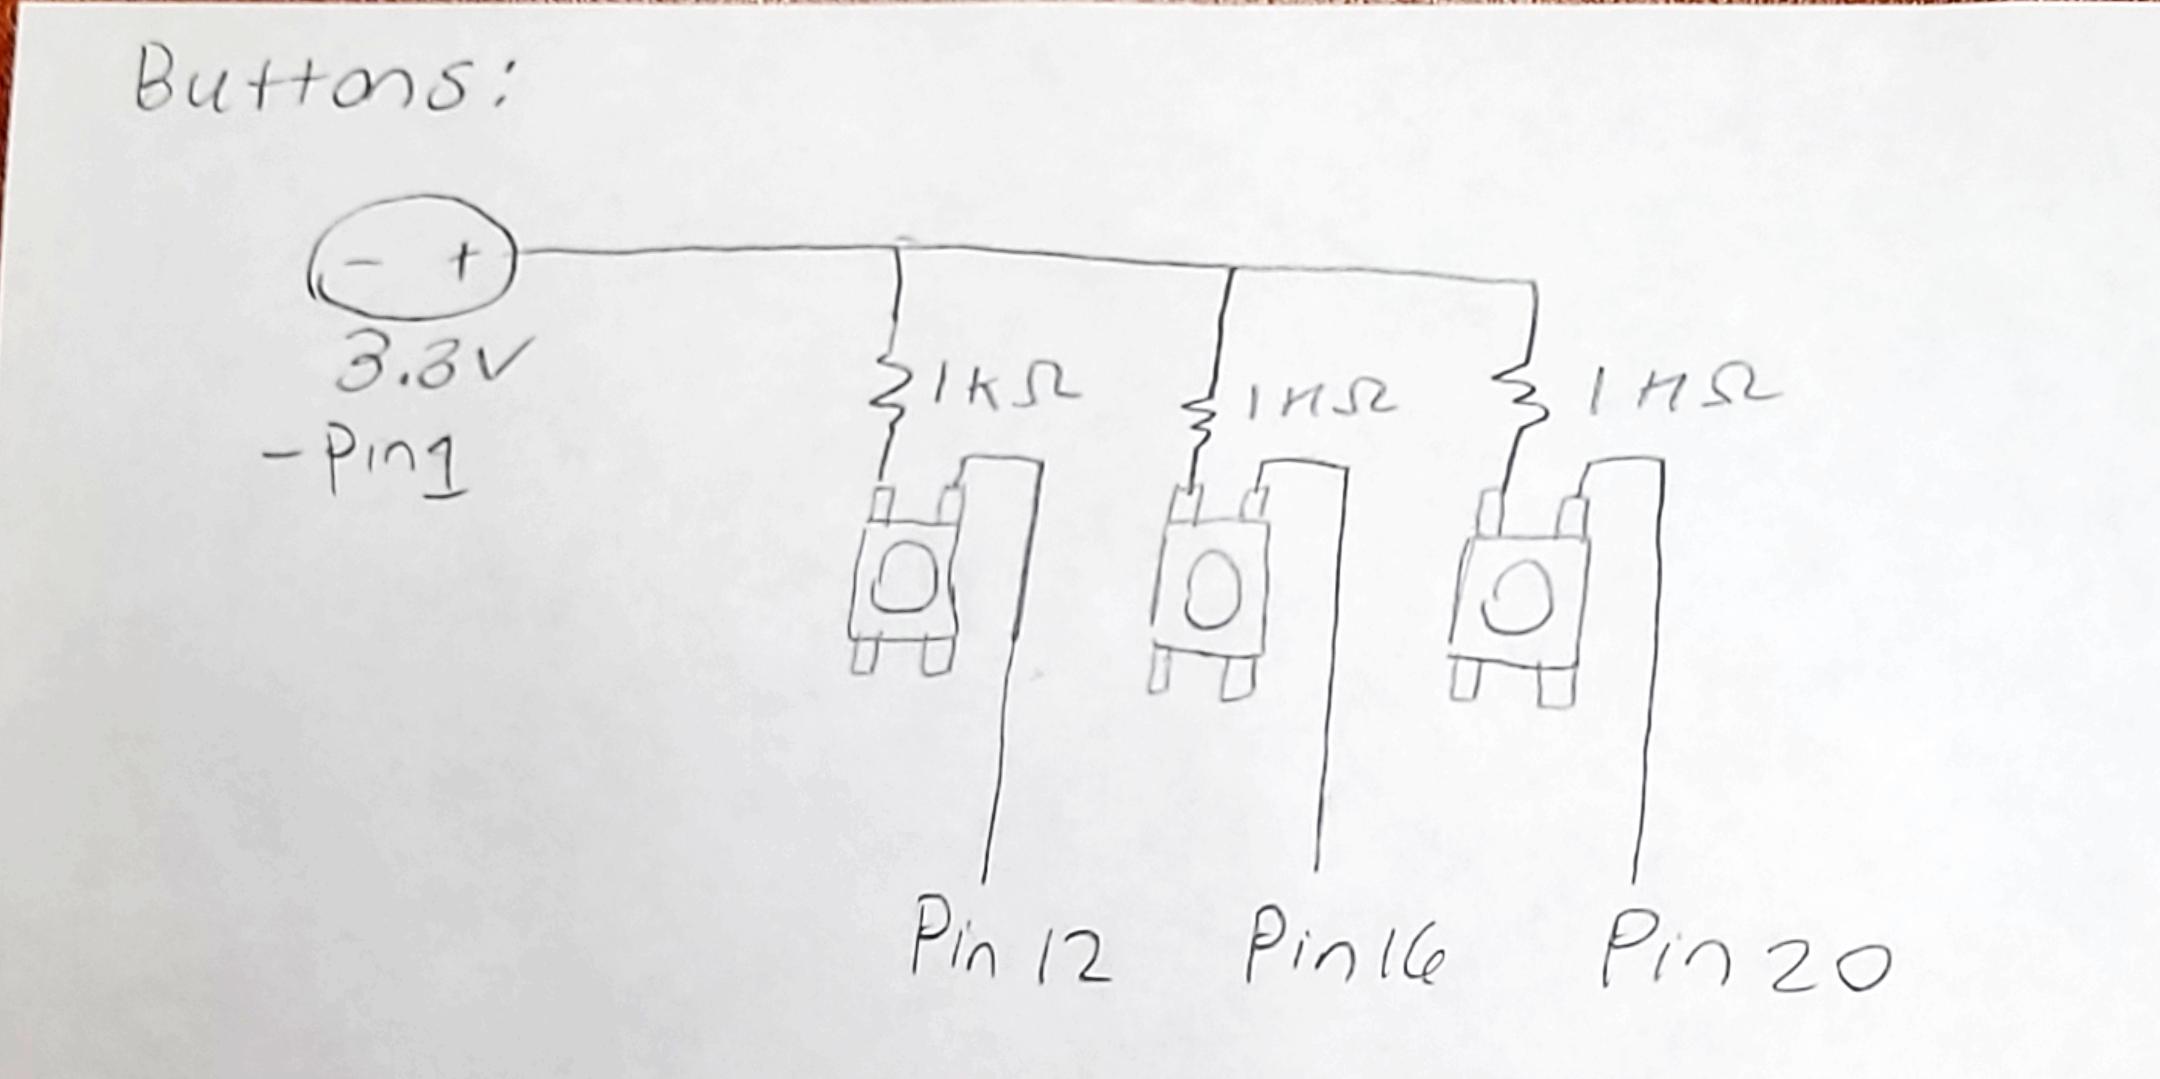 Buttons:
- +
3.3V
- Pin 1
1KΩ
1KΩ
1KΩ
Pin 12
Pin 16
Pin 20